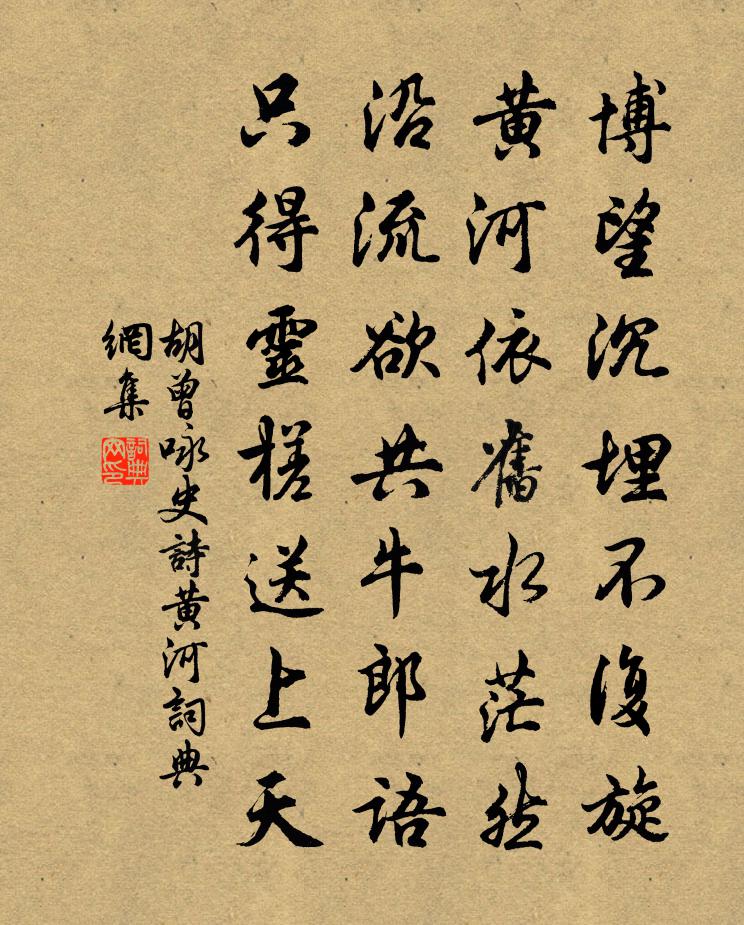 博望沉埋不復旋
黃河依舊水茫然
沿流欲共牛郎語
只得靈槎送上天
胡曾咏史詩黃河詞典
網集
詞典
网印